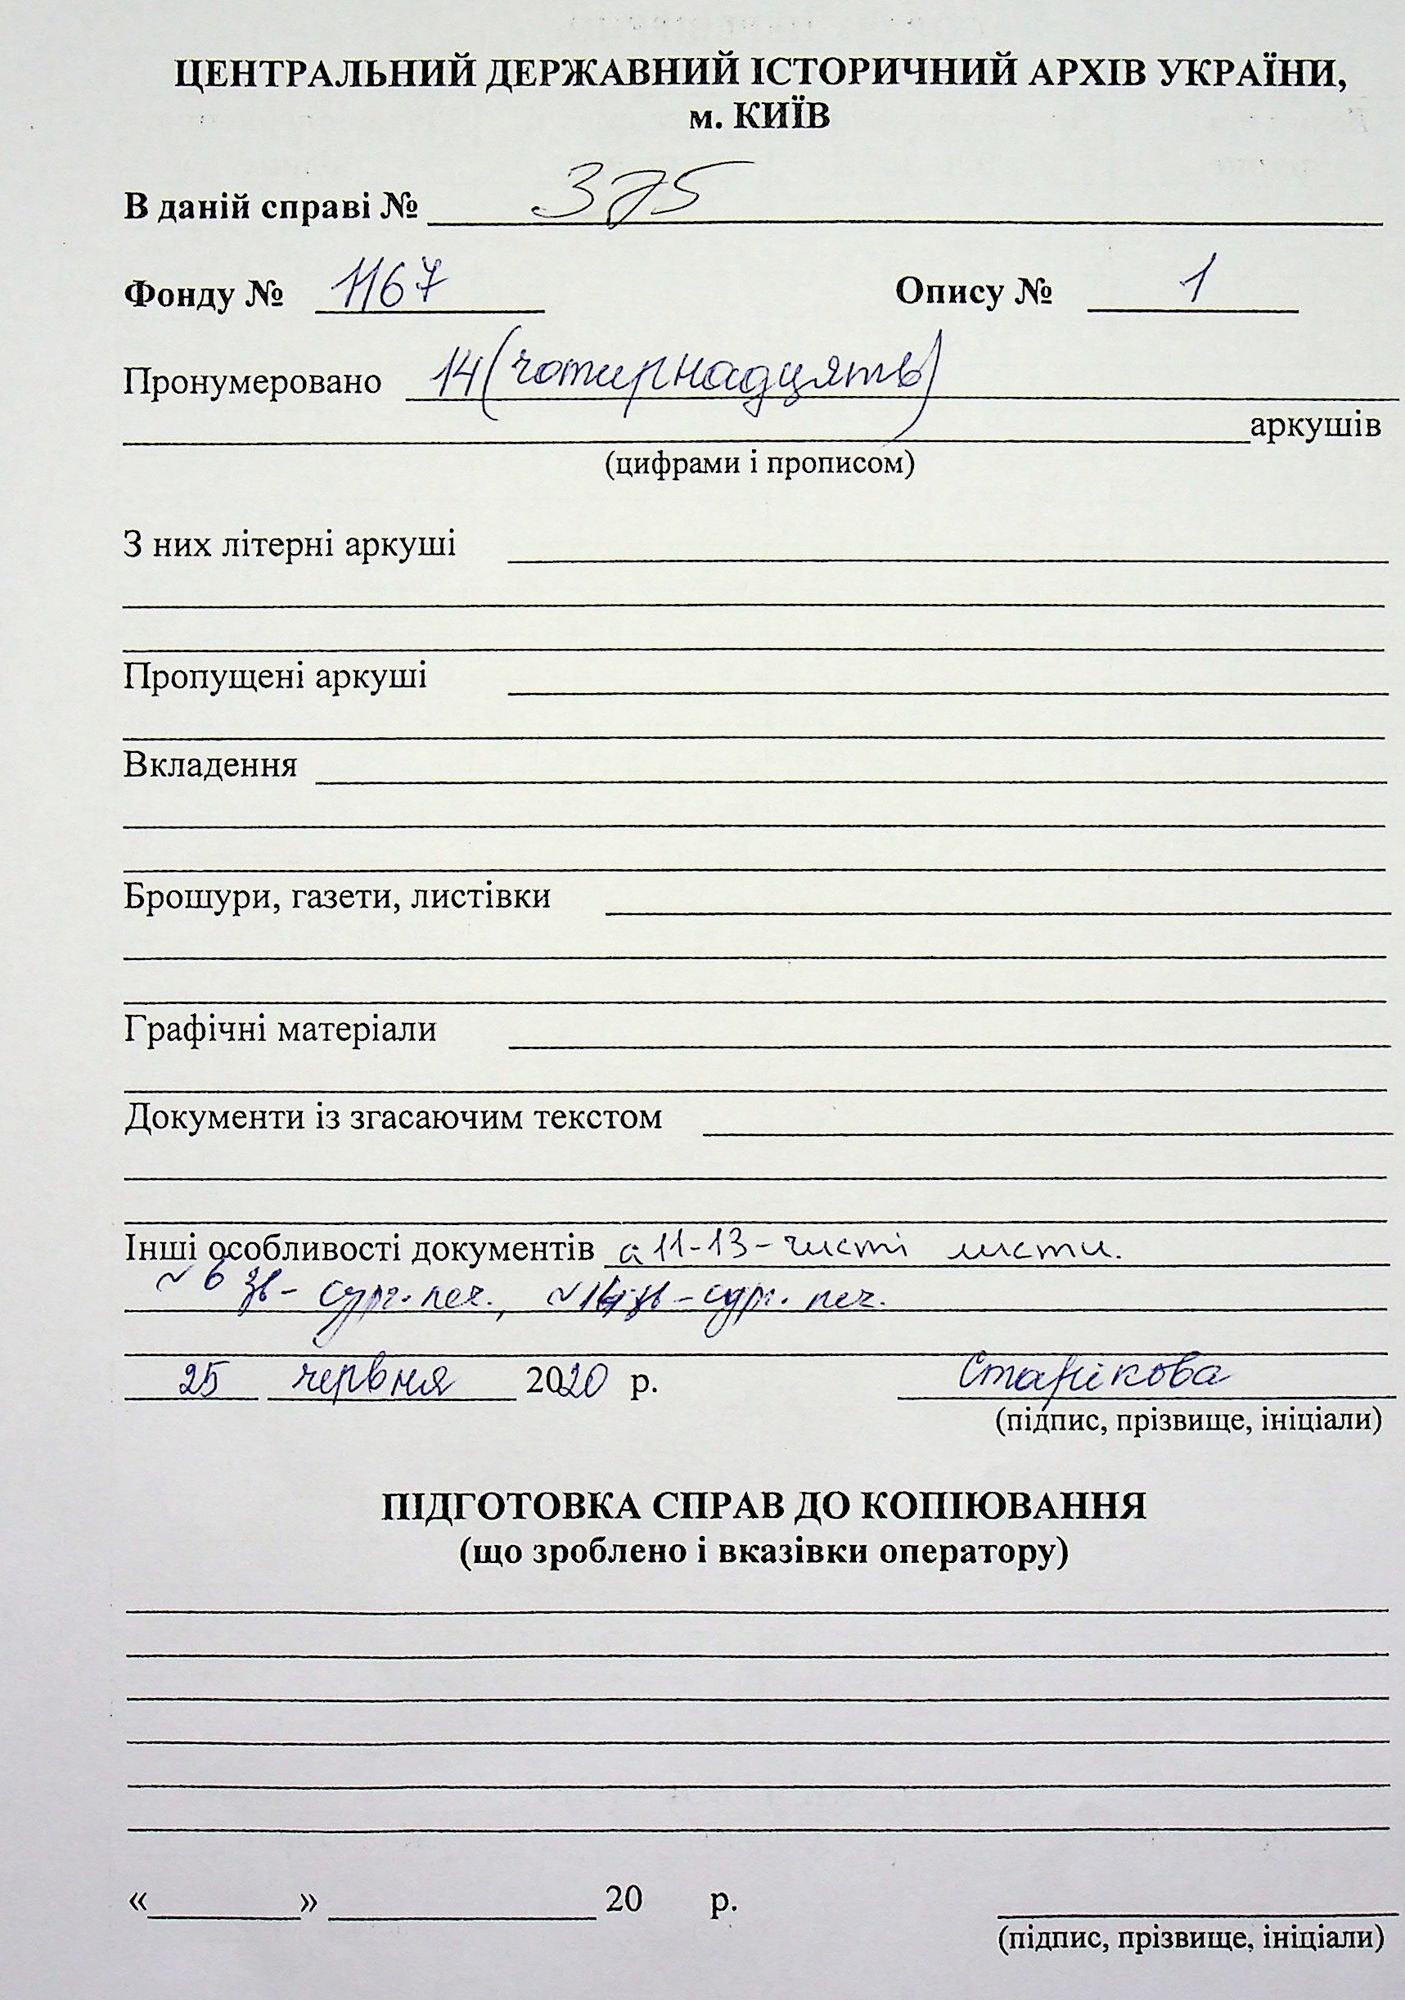 ЦЕНТРАЛЬНИЙ ДЕРЖАВНИЙ ІСТОРИЧНИЙ АРХІВ УКРАЇНИ,
м. КИЇВ
В даній справі № 375
Фонду № 1167 Опису № 1
Пронумеровано 14 (чотирнадцять)
аркушів
(цифрами і прописом)
З них літерні аркуші
Пропущені аркуші
Вкладення
Брошури, газети, листівки
Графічні матеріали
Документи із згасаючим текстом
Інші особливості документів а 11-13 - чисті листи.
~ 6 зв - сург. печ., ~ 14 зв - сург. печ.
25 червня 2020 р. Старікова
(підпис, прізвище, ініціали)
ПІДГОТОВКА СПРАВ ДО КОПІЮВАННЯ
(що зроблено і вказівки оператору)
«________» ______________ 20 р.
(підпис, прізвище, ініціали)